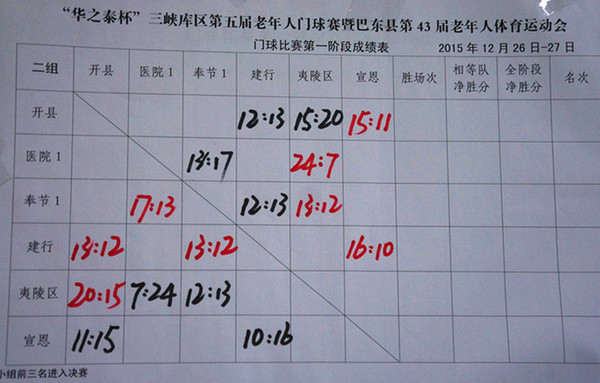 “华之泰杯”三峡库区第五届老年人门球赛暨巴东县第43届老年人体育运动会
门球比赛第一阶段成绩表 2015年12月26日-27日
二组 开县 医院1 奉节1 建行 夷陵区 宣恩 胜场次 相等队净胜分 全阶段净胜分 名次
开县 12:13 15:20 15:11
医院1 13:17 24:7
奉节1 17:13 12:13 13:12
建行 13:12 13:12 16:10
夷陵区 20:15 7:24 12:13
宣恩 11:15 10:16
小组前三名进入决赛